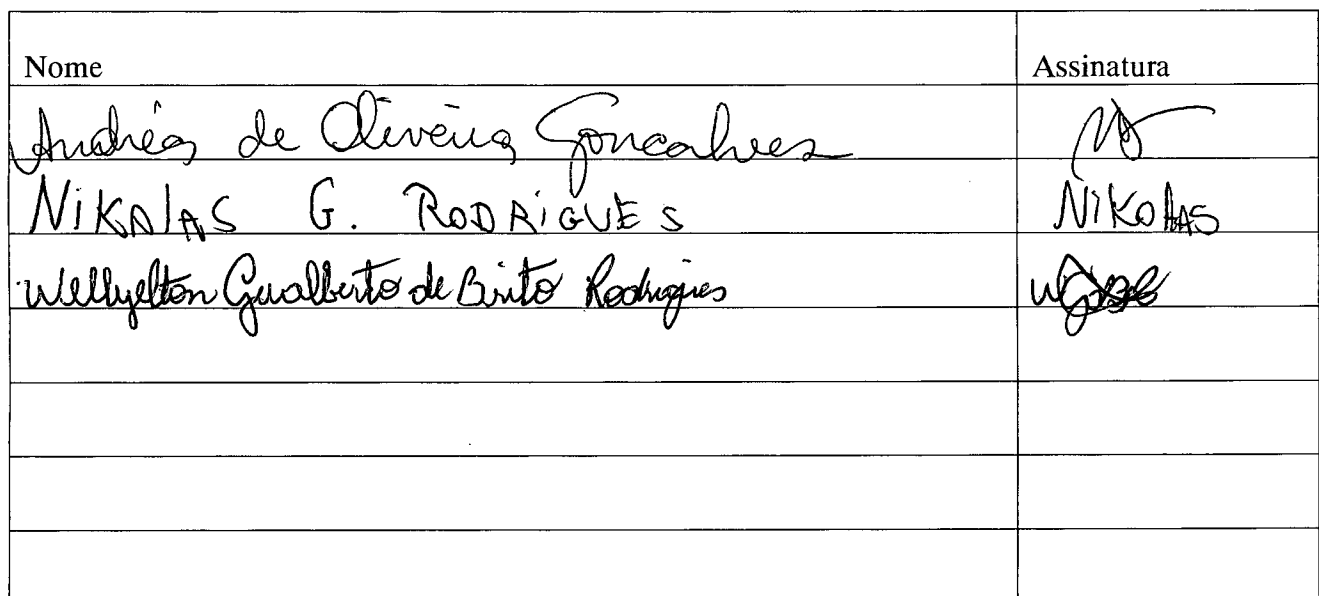 Nome Assinatura
Andréa de Oliveira Goncalves
NiKOlAS G. RODRiGUES NiKOlAS
Wellyelton Gualberto de Brito Rodrigues